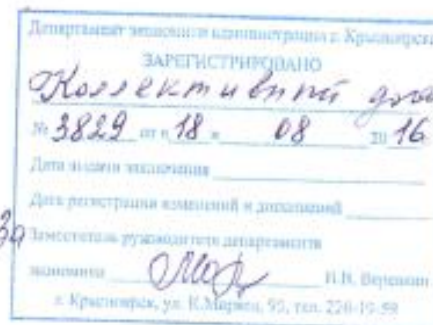 Департамент экономики администрации г. Красноярска
ЗАРЕГИСТРИРОВАНО
Коллективный дого
№ 3829 от « 18 » 08 20 16
Дата выдачи заключения
Дата регистрации изменений и дополнений
За Заместитель руководителя департамента
экономики
г. Красноярск, ул. К.Маркса, 95, тел. 226-19-59